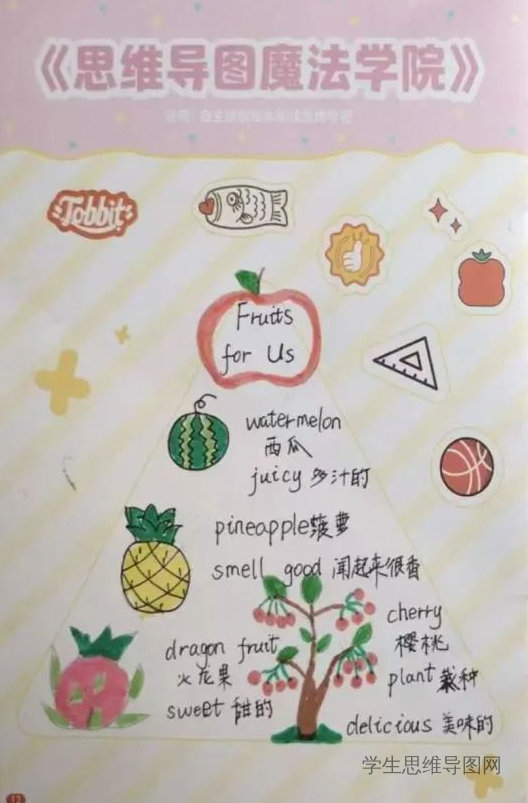 《思维导图魔法学院》
Tobbit
Fruits
for Us
watermelon
西瓜
juicy 多汁的
pineapple菠萝
smell good 闻起来很香
cherry
樱桃
plant 栽种
delicious 美味的
dragon fruit
火龙果
sweet 甜的
学生思维导图网
12